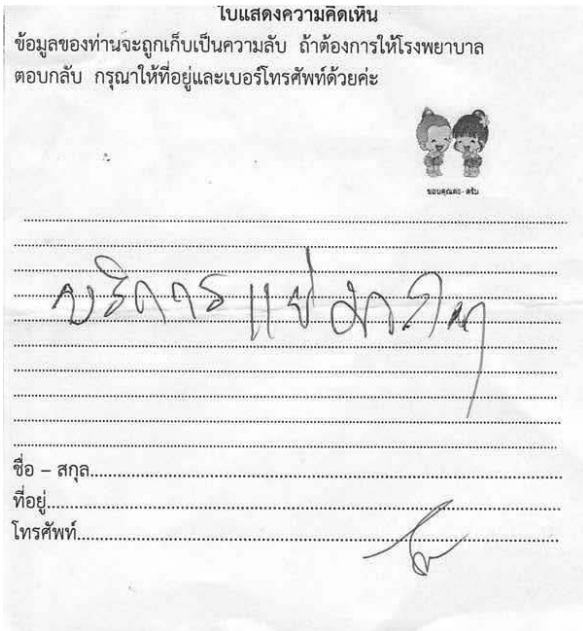 ใบแสดงความคิดเห็น
ข้อมูลของท่านจะถูกเก็บเป็นความลับ ถ้าต้องการให้โรงพยาบาล
ตอบกลับ กรุณาให้ที่อยู่และเบอร์โทรศัพท์ด้วยค่ะ
ขอบคุณคะ - ครับ
บริการแย่มาก
ชื่อ – สกุล
ที่อยู่
โทรศัพท์